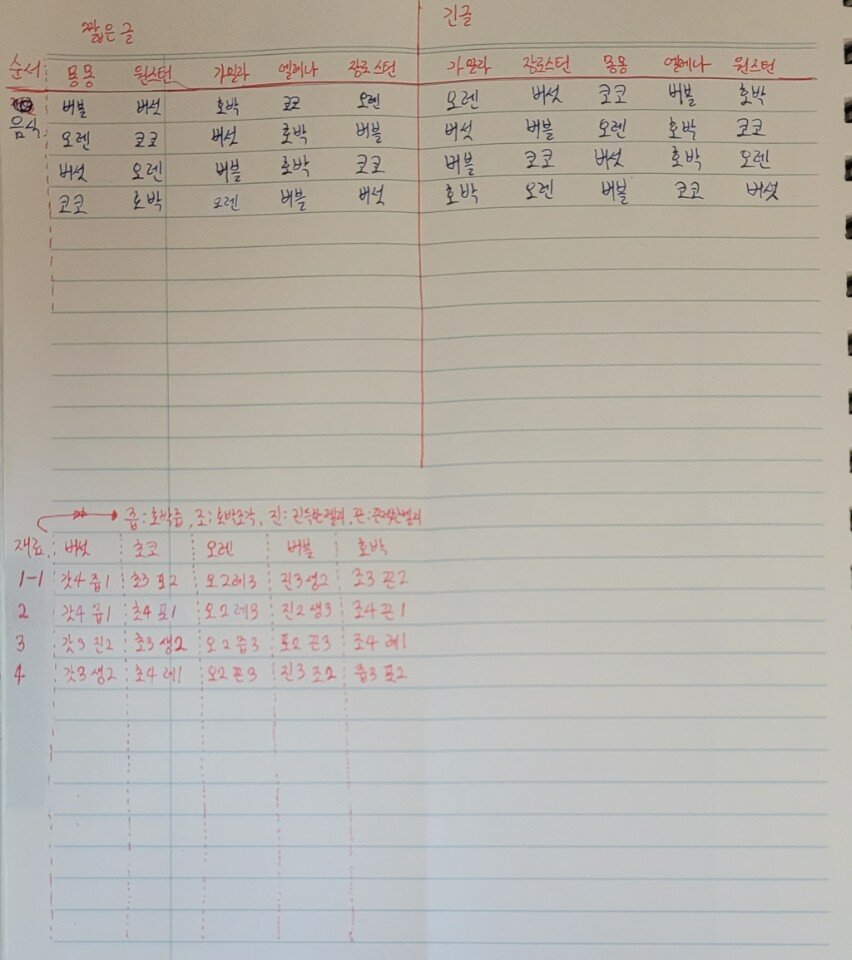 짧은 글 긴글
순서 몽몽 윈스턴 가밀라 엘레나 장로스턴 가밀라 장로스턴 몽몽 엘레나 윈스턴
음식 버블 버섯 호박 코코 오렌 오렌 버섯 코코 버블 호박
오렌 코코 버섯 호박 버블 버섯 버블 오렌 호박 코코
버섯 오렌 버블 호박 코코 버블 코코 버섯 호박 오렌
코코 호박 오렌 버블 버섯 호박 오렌 버블 코코 버섯
즙:호박즙, 조:호박조각, 진:진득한젤리, 끈:끈적한젤리
재료 버섯 초코 오렌 버블 호박
1-1 갓4 즙1 초3 포2 오2레3 진3생2 조3 끈2
2 갓4 즙1 초4 포1 오2 레3 진2 생3 조4 끈1
3 갓3 진2 초3 생2 오2 즙3 포2 끈3 조4 레1
4 갓3 생2 초4 레1 오2 끈3 진3 조2 즙3 포2